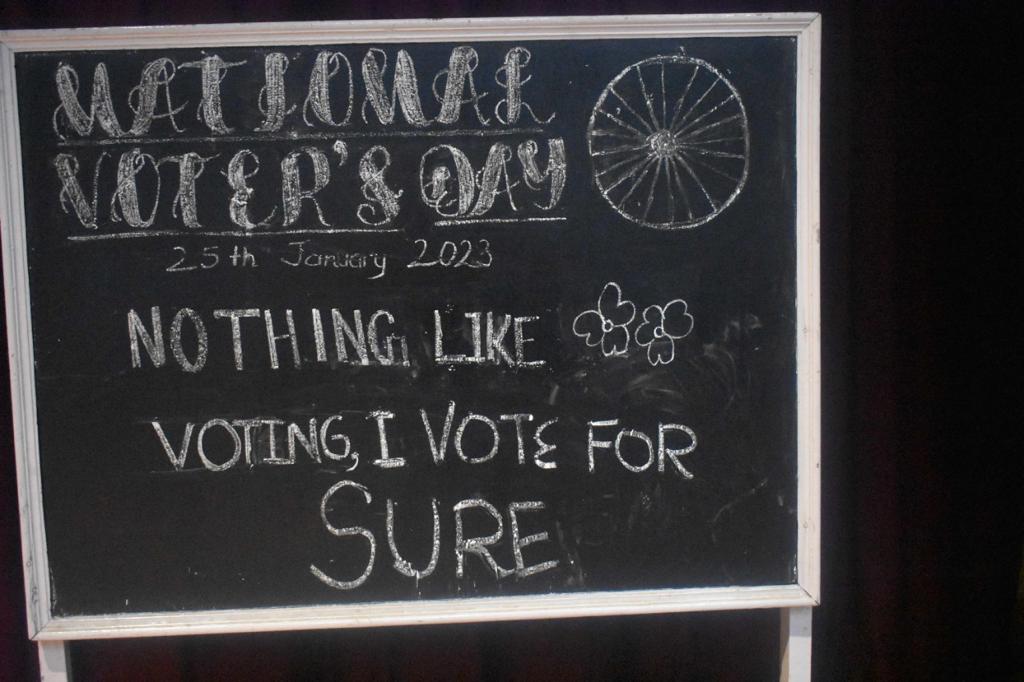 NATIONAL
VOTER'S DAY
25th January 2023
NOTHING LIKE
VOTING, I VOTE FOR
SURE